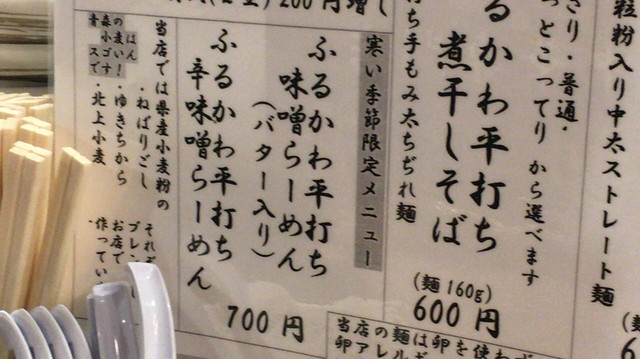 粒粉入り中太ストレート麺
さり・普通・
っとこってり から選べます
ふるかわ平打ち
煮干しそば
(麺160g)
600円
ち手もみ太ちぢれ麺
200円増し
寒い季節限定メニュー
ふるかわ平打ち
味噌らーめん
(バター入り)
ふるかわ平打ち
辛味噌らーめん
700円
当店では県産小麦粉の
・ねばりごし
・ゆきちから
・北上小麦
それぞ
ブレン
お店で
作ってい
当店の麺は卵を使わず
卵アレル